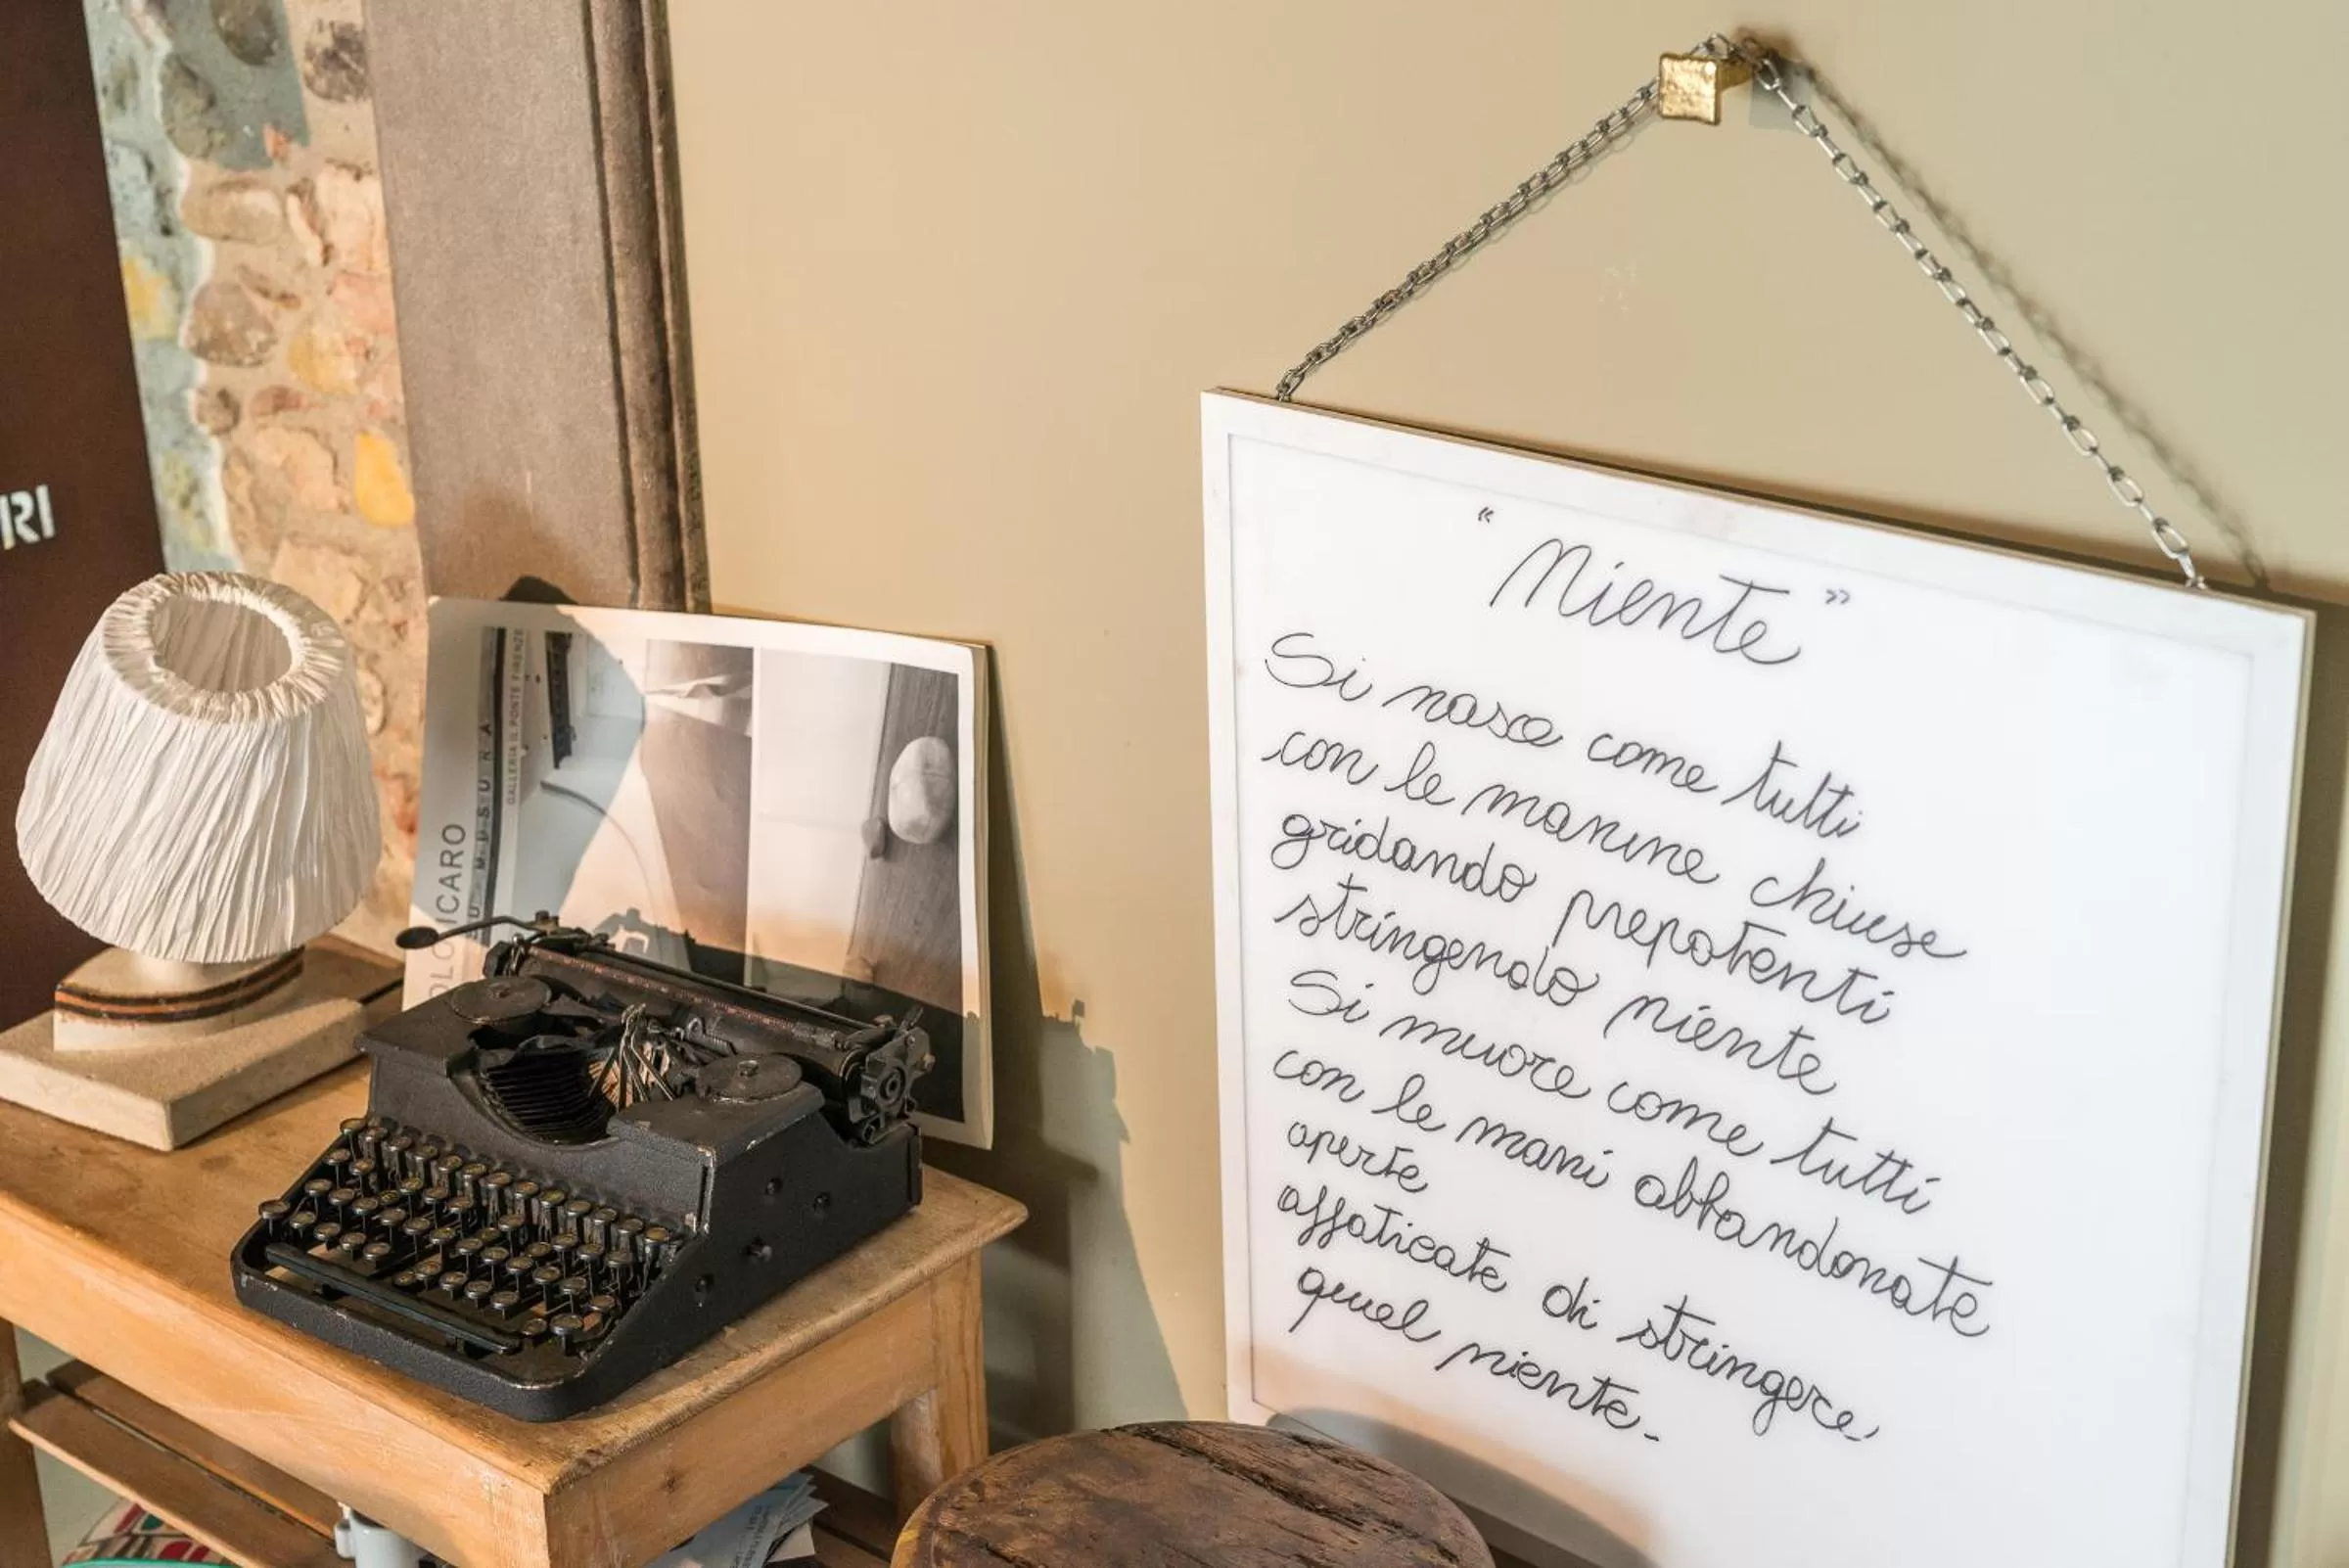 RI
ICARO
GALLERIA IL PONTE FIRENZE
"Niente"
Si nasce come tutti
con le manine chiuse
gridando prepotenti
stringendo niente
Si muore come tutti
con le mani abbandonate
aperte
affaticate di stringere
quel niente.